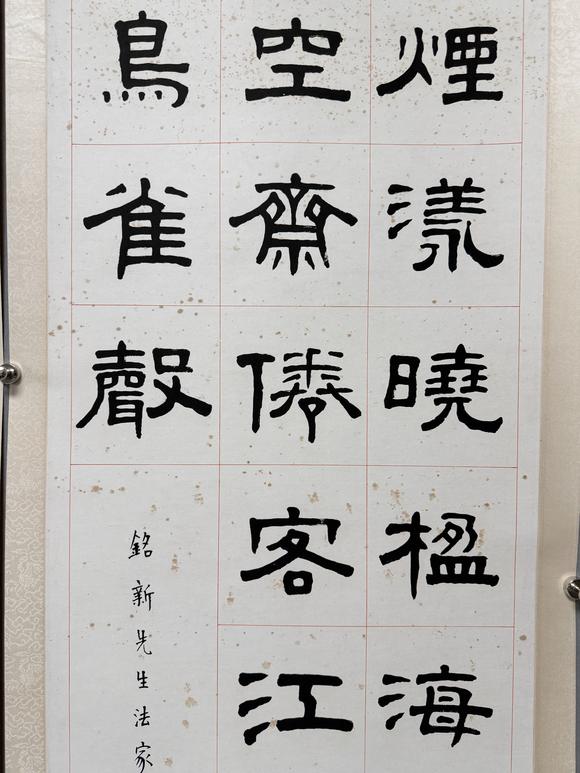 煙漾曉楹海
空齋倦客江
鳥雀聲
銘新先生法家